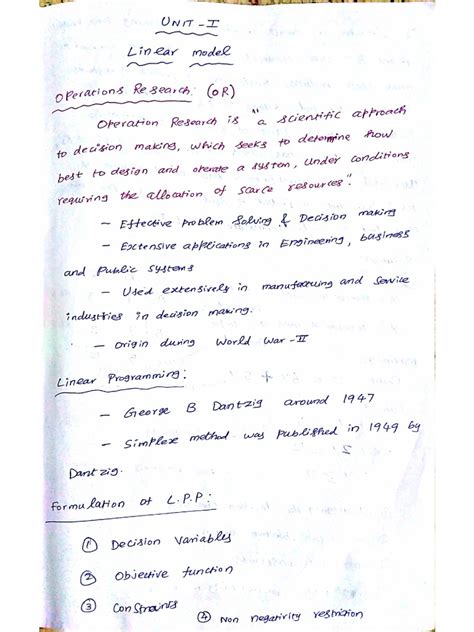 UNIT - I
Linear model
Operations Research: (OR)
Operation Research is "a scientific approach
to decision making, which seeks to determine how
best to design and operate a system, under conditions
requiring the allocation of scarce resources".
- Effective Problem Solving & Decision making
- Extensive applications in Engineering, business
and Public Systems
- Used extensively in manufacturing and Service
industries in decision making.
- Origin during World War - II
Linear Programming:
- George B Dantzig around 1947
- Simplex method was published in 1949 by
Dantzig.
Formulation of L.P.P:
① Decision Variables
② Objective function
③ Constraints
④ Non negativity restriction